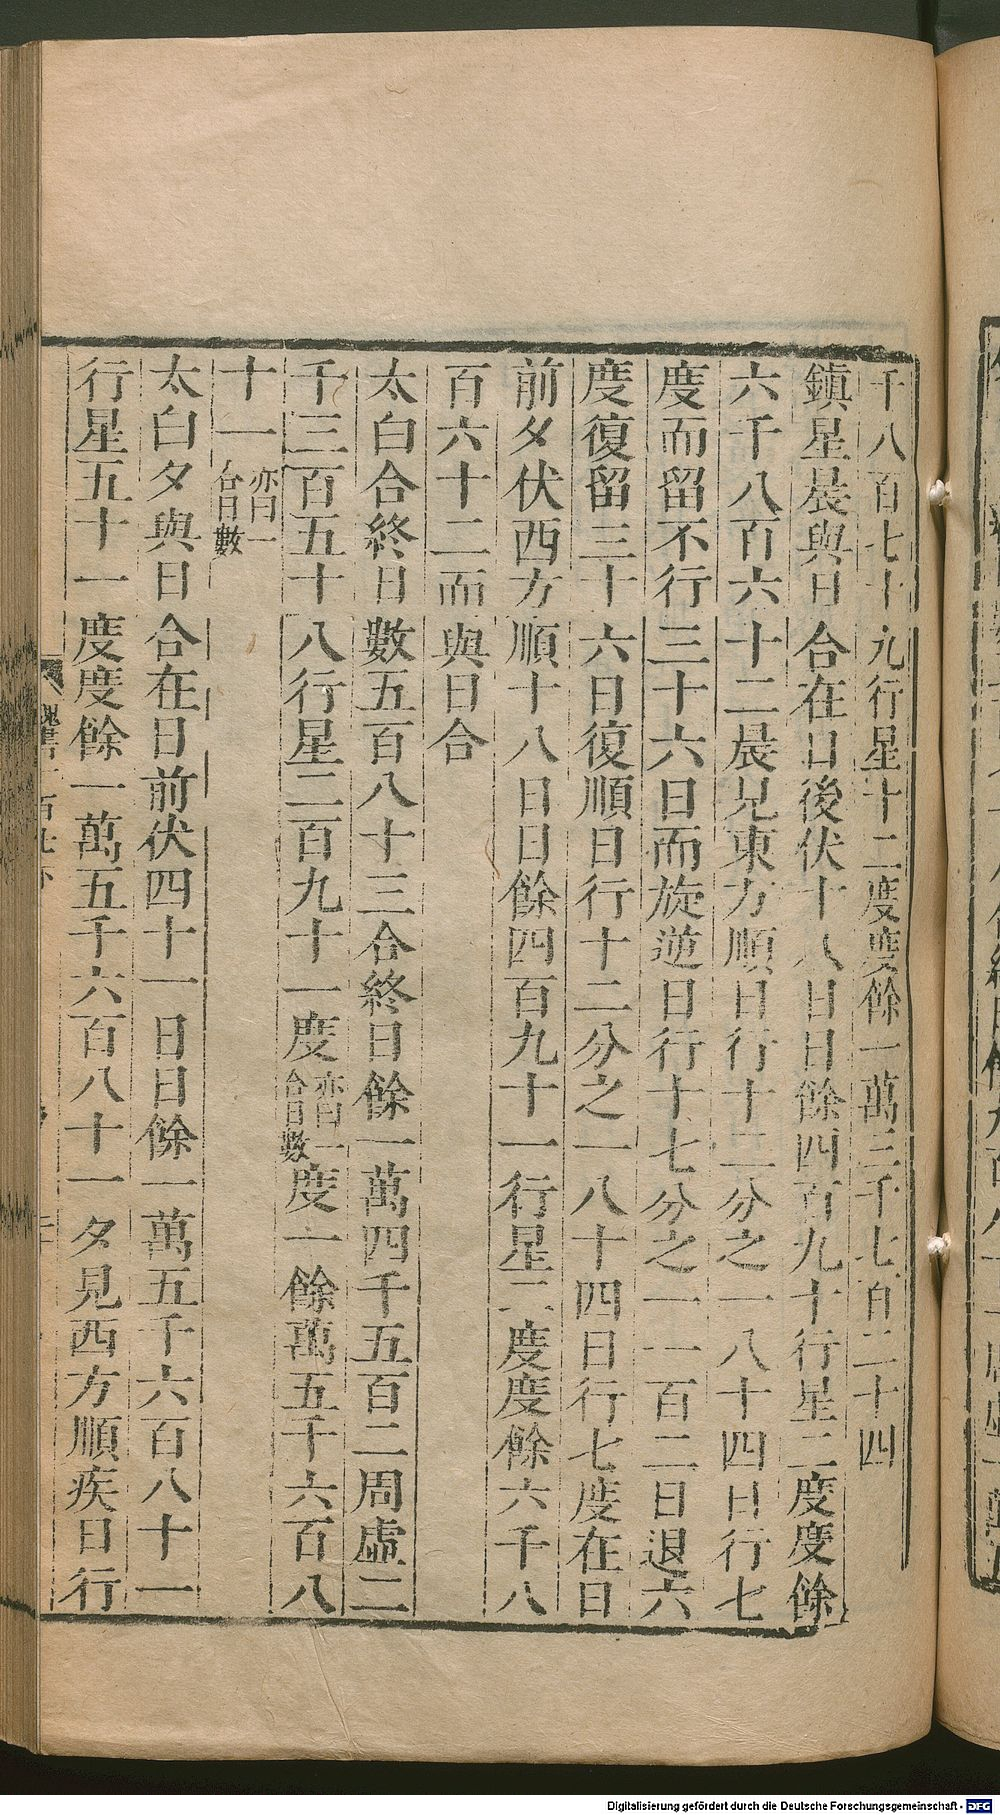 千八百七十九行星十二度度餘一萬三千七百二十四
鎭星晨與日合在日後伏十八日日餘四百九十行星二度度餘
六千八百六十二晨見東方順日行十二分之一八十四日行七
度而留不行三十六日而旋逆日行十七分之一一百二日退六
度復留三十六日復順日行十二分之一八十四日行七度在日
前夕伏西方順十八日日餘四百九十一行星二度度餘六千八
百六十二而與日合
太白合終日數五百八十三合終日餘一萬四千五百二周虛二
千三百五十八行星二百九十一度亦曰一合日數度一餘萬五千六百八
十一亦曰一合日數
太白夕與日合在日前伏四十一日日餘一萬五千六百八十一
行星五十一度度餘一萬五千六百八十一夕見西方順疾日行
Digitalisierung gefördert durch die Deutsche Forschungsgemeinschaft - DFG